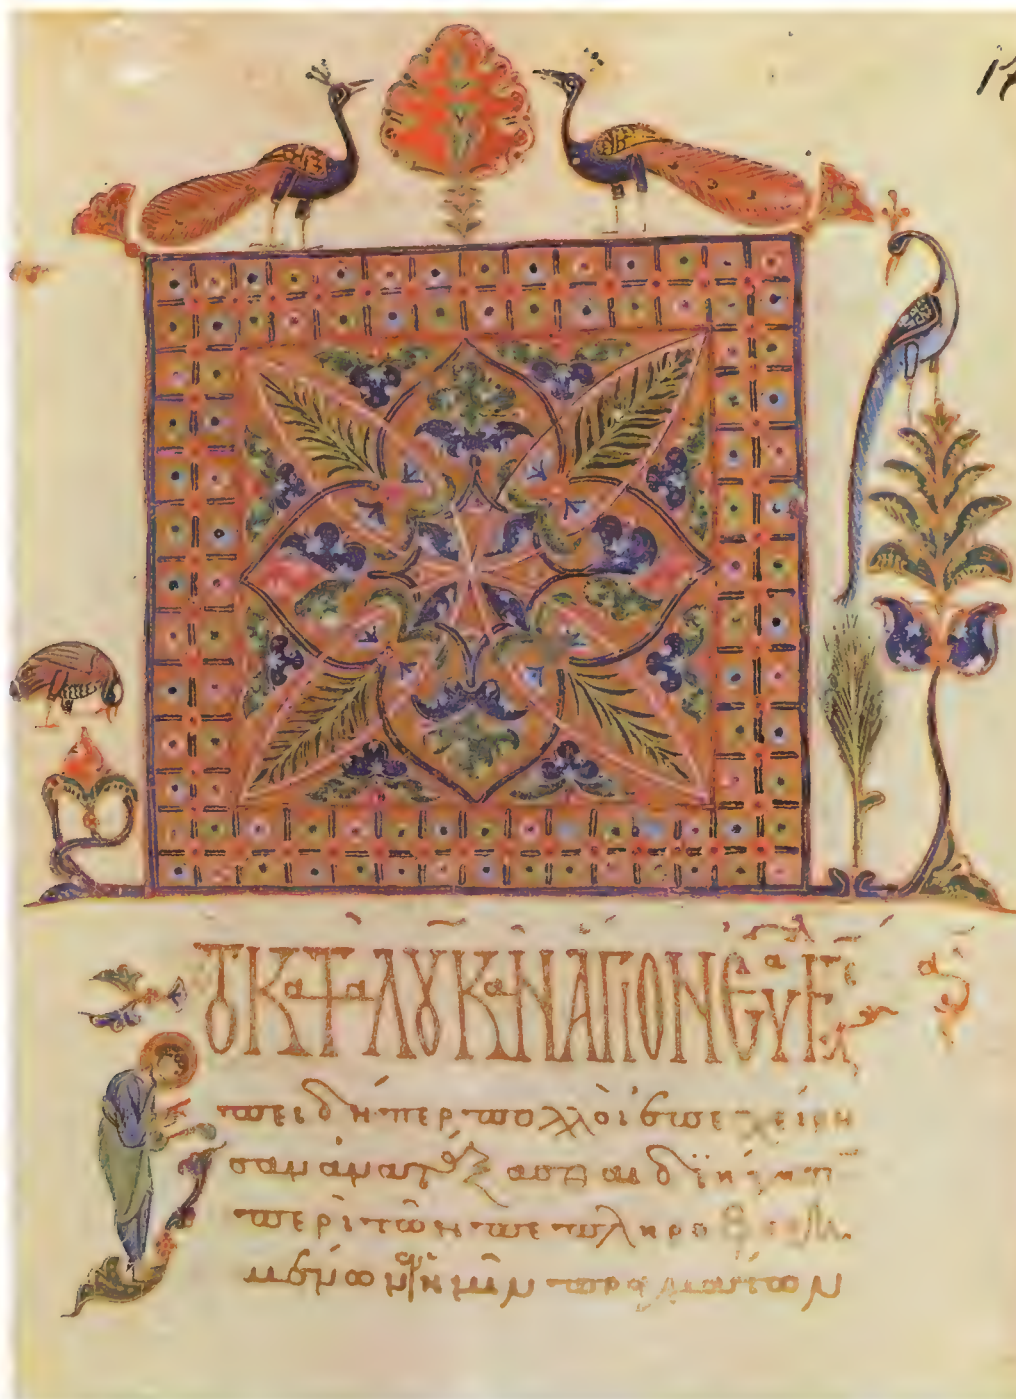 ΤΟ ΚαΤα ΛΟΥΚαΝ ΑΓΙΟΝ ΕΥαΓΓε
πειδήπερ πολλοὶ ἐπεχείρη
σαν ἀνατάξασθαι διήγησι
περὶ τῶν πεπληρο
μένων ἐν ἡμῖν πραγμάτων